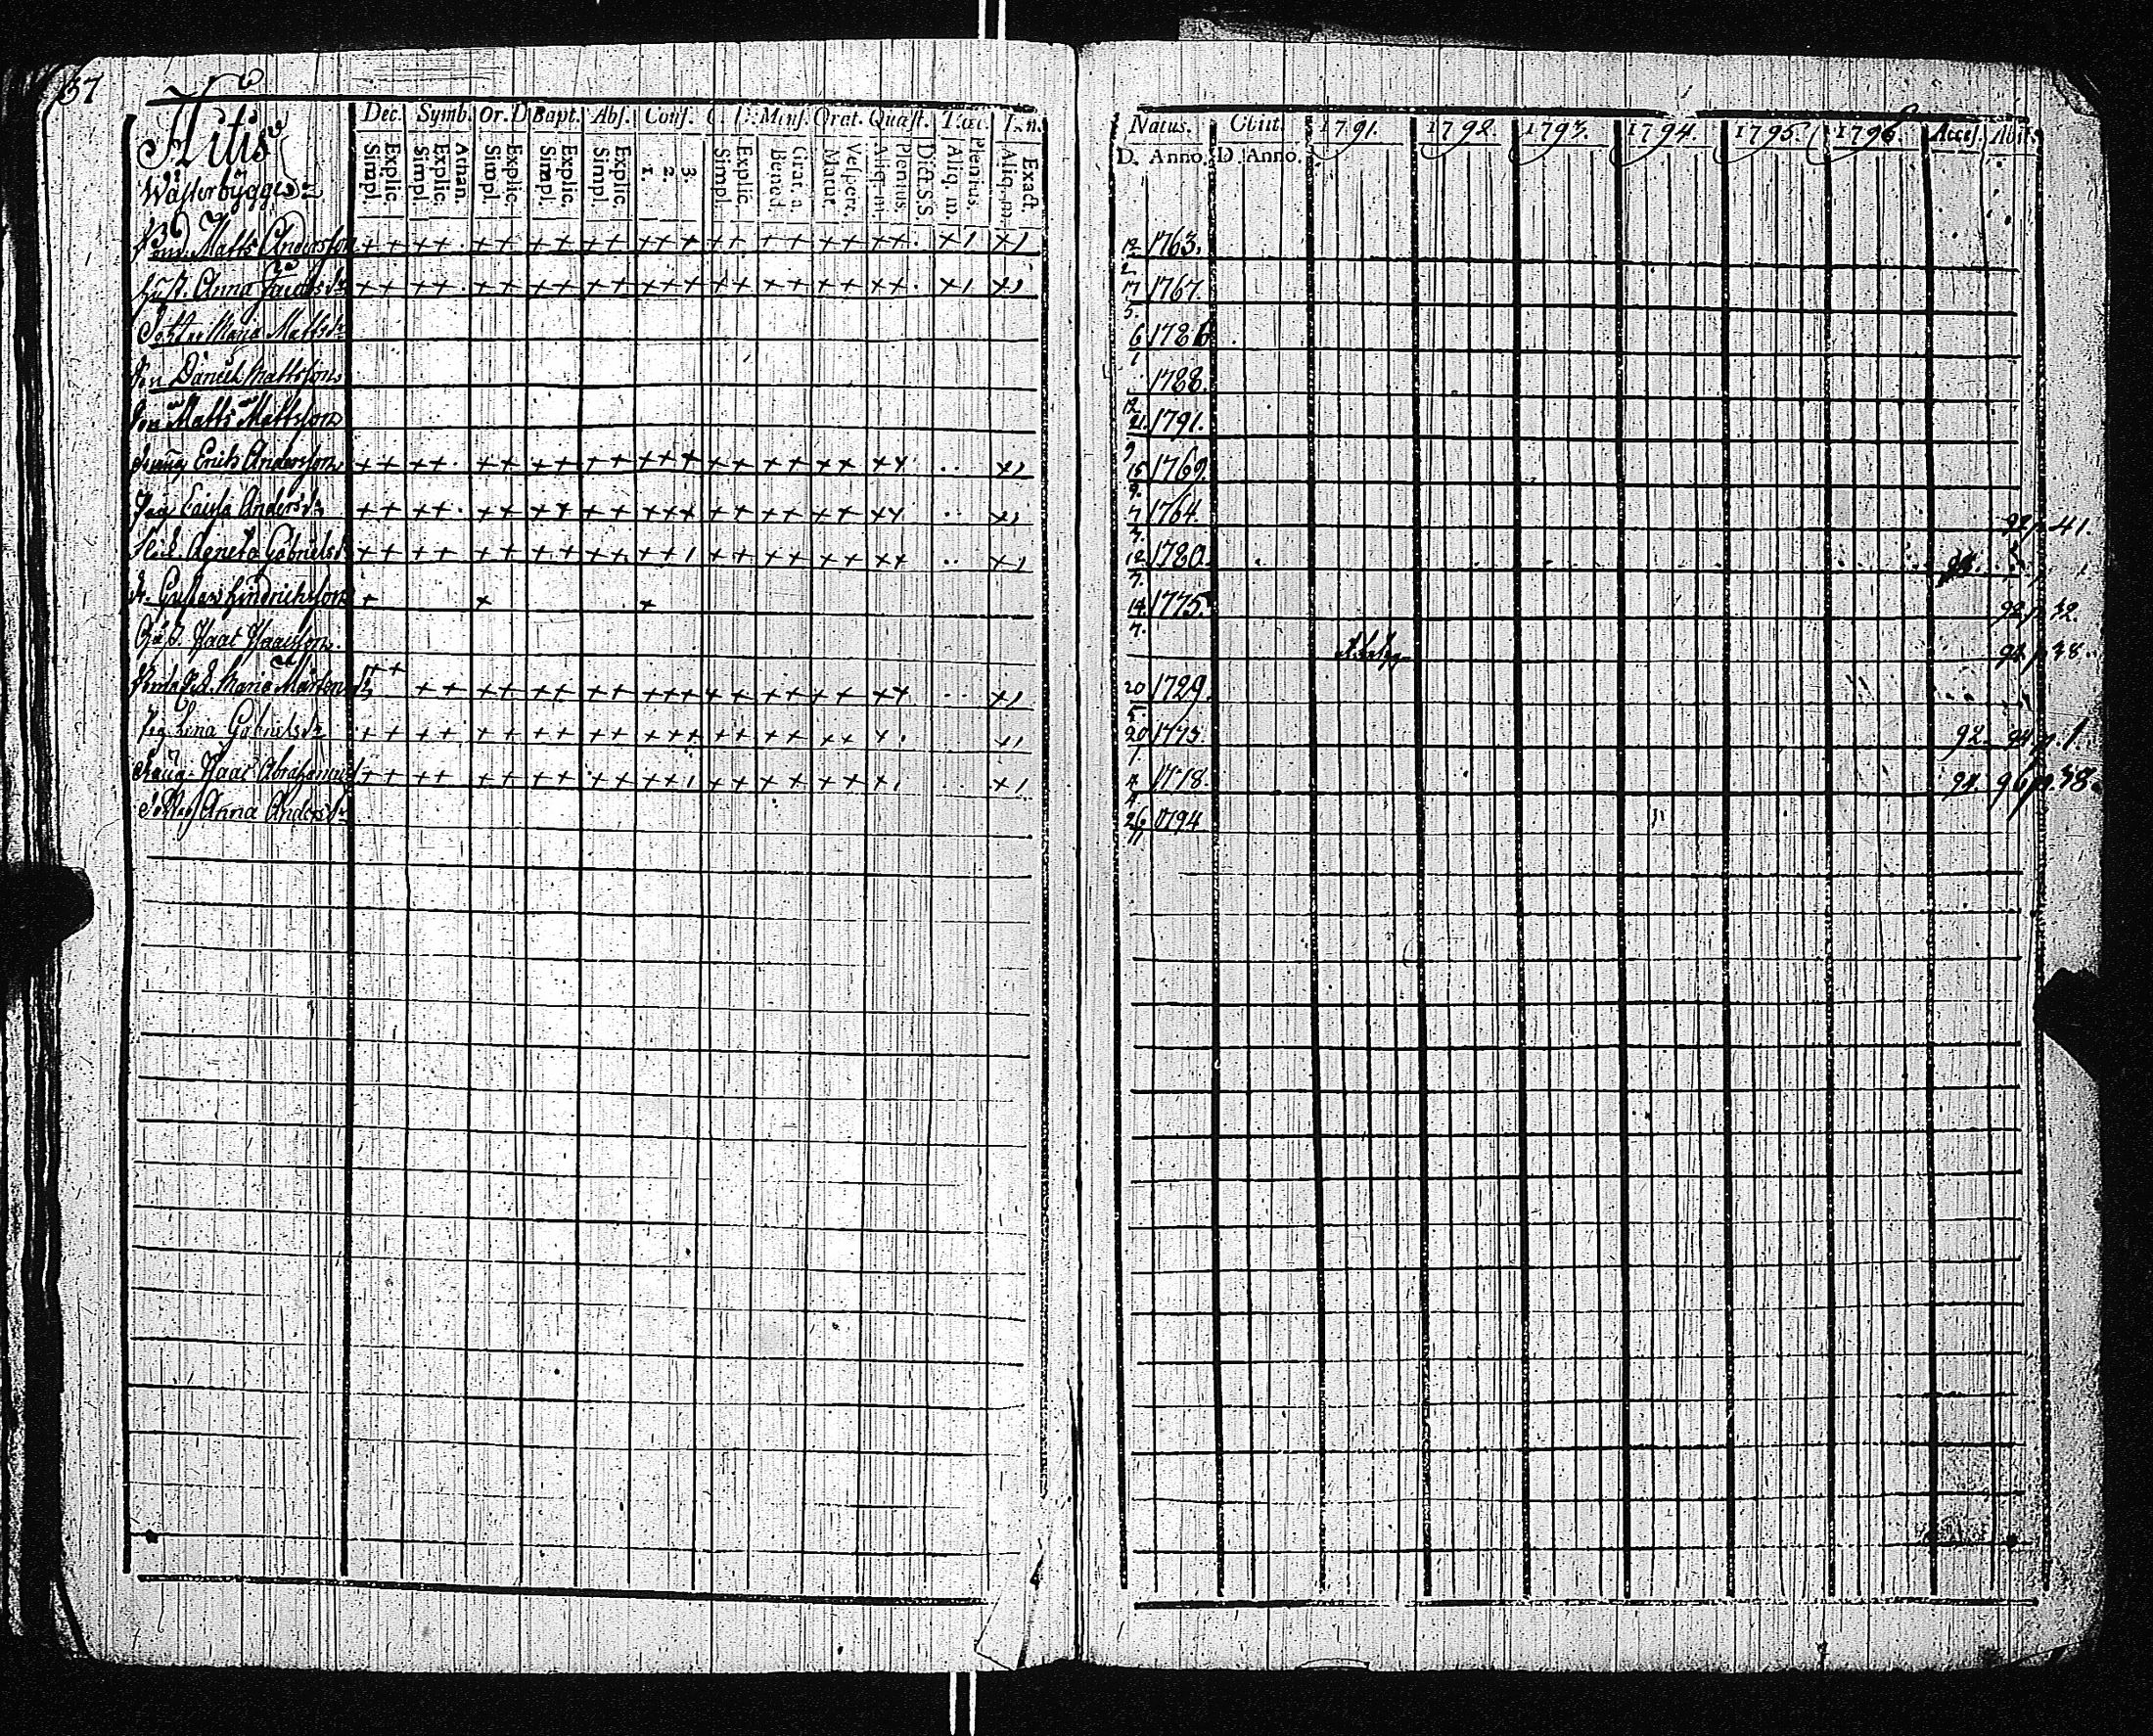 37
Hitis
Wästerbygges
Dec. Symb. Or. D Bapt. Abs. Conf. C. D. Mens. Orat. Quæst. Tac. In.
Simpl. Explic. Simpl. Explic. Athan. Simpl. Explic. Simpl. Explic. Simpl. Explic. 1. 2. 3. Simpl. Explic. Bened. Grat. a. Matut. Vespert. Aliq. m Plenius. Dict. S.S. Aliq. m. Plenius. Aliq. m. Exact.
Natus. Obiit. 1791. 1792. 1793. 1794. 1795. 1796. Acces. Abit.
D. Anno. D Anno.
Matts Andersson ++ ++. ++ ++ ++ +++ ++ ++ ++ ++. +1 +1 12 2 1763.
Hust. Anna Jacobsdr ++ ++. ++ ++ ++ +++ ++ ++ ++ ++. +1 +1 17 5. 1767.
Dotter Maria Mattsdr 6 1 1786
Son Daniel Mattsson 1788.
Son Matts Mattsson 12 21. 9 1791.
Erich Andersson ++ ++. ++ ++ ++ +++ ++ ++ ++ ++ .. +1 15 9. 1769.
Pig. Caisa Andersdr ++ ++. ++ ++ ++ +++ ++ ++ ++ ++ .. +1 7 7. 1764. 92 p. 41.
Agneta Gabrielsdr ++ ++ ++ ++ ++ ++1 ++ ++ ++ ++ .. +1 12 7. 1780.
Gustav Hindrichsson + + + 14. 7. 1775 92 p. 32.
Isaac Isaacsson. 92 p. 38.
Maria Mårtensdr ++ ++ ++ ++ ++ +++ ++ ++ ++ ++ .. +1 20 5. 1729.
Pig. Lena Gabrielsdr ++ ++ ++ ++ ++ +++ ++ ++ ++ +. +1 20 1. 1775. 92. 94 p. 1.
Isaac Abrahamss ++ ++ ++ ++ ++ ++1 ++ ++ ++ +1 +1 4 4. 1778. 94. 96 p. 38.
Anna Andersdr 26 11 1794